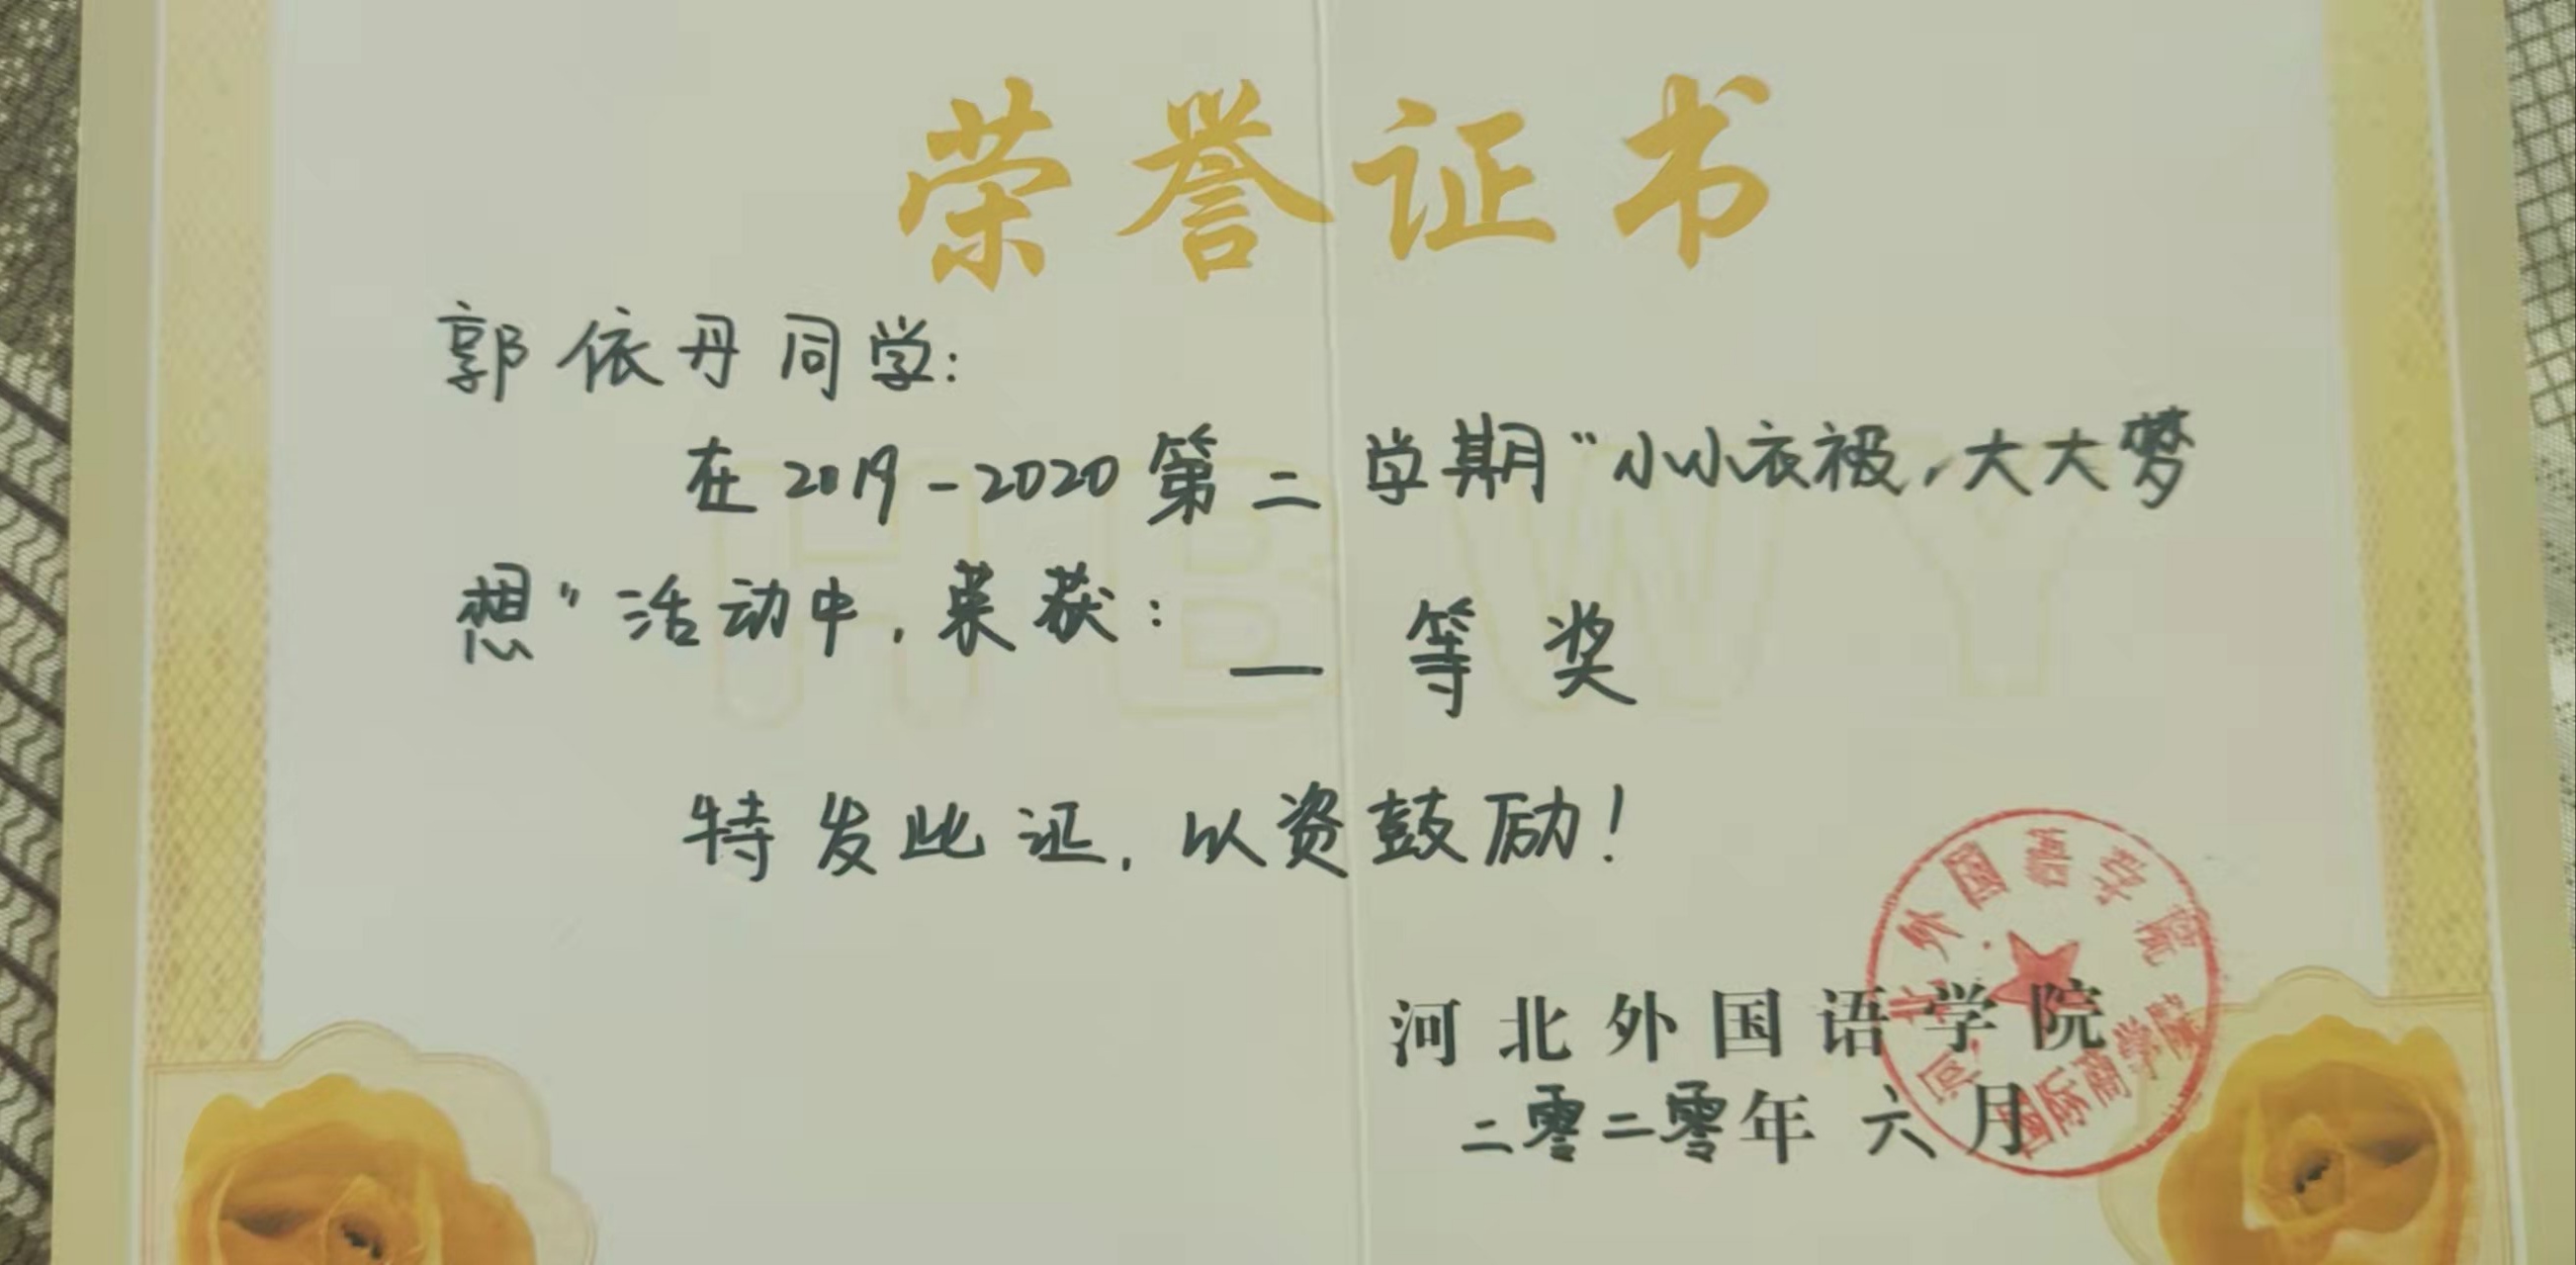 荣誉证书
郭依丹同学:
在2019-2020第二学期"小小衣被,大大梦
想"活动中,荣获:
一等奖
特发此证,以资鼓励!
河北外国语学院
二零二零年六月
河北外国语学院
国际商学院
HBWY